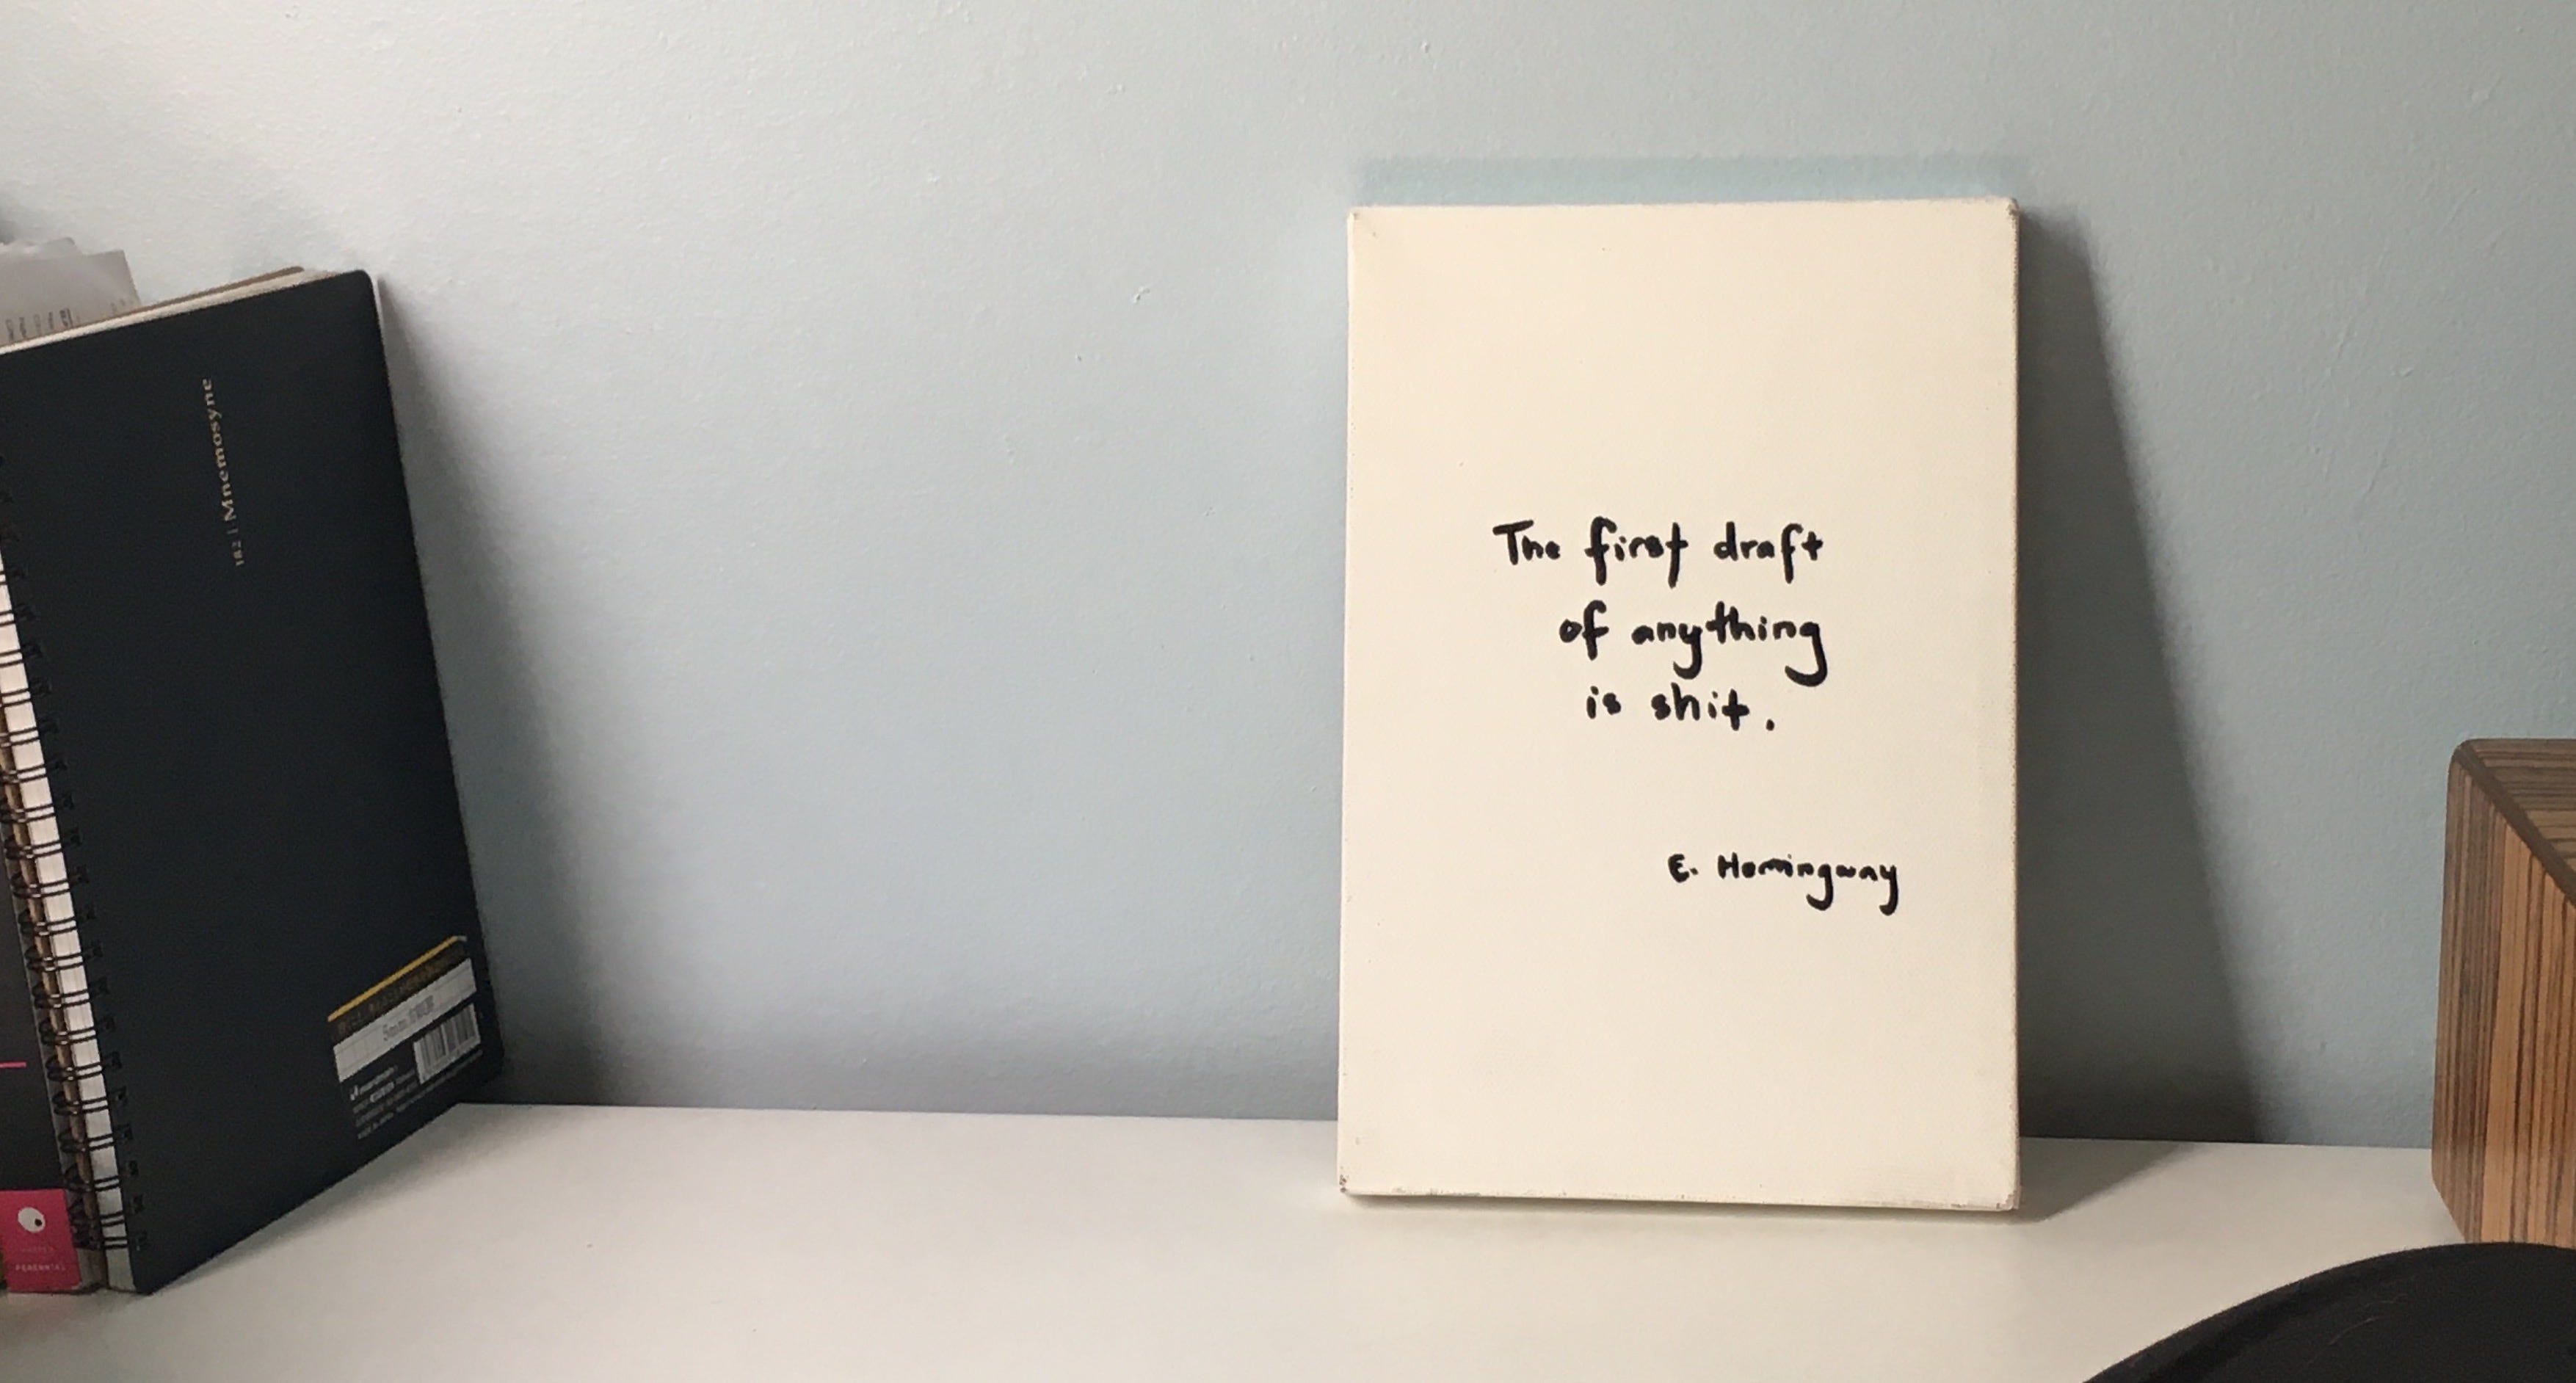 182 | Mnemosyne
The first draft
of anything
is shit.
E. Hemingway
PERENNIAL